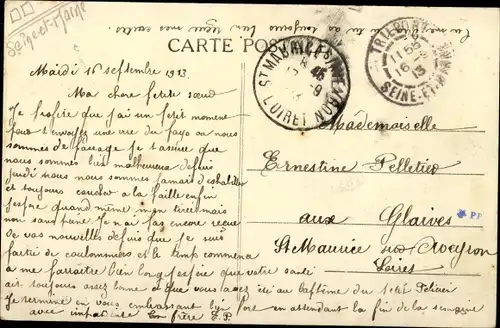 Seine-et-Marne
CARTE POSTALE
TRILPORT
16 -9 13
SEINE-ET-MARNE
ST MAURICE-S-AVEYRON
LOIRET
Mardi 16 septembre 1913
Ma chère petite sœur
Je profite que j'ai un petit moment
pour t'envoyer une vue du pays ou nous
sommes de passage je t'assure que
nous sommes bien malheureux depuis
jeudi nous nous sommes jamais déshabiller
et toujours coucher a la paille enfin
j'espère quand même
non sans peine. Je n'ai pas encore reçue
de vos nouvelles depuis que je suis
partie de coulommiers et le temp commence
a me parraitre bien long j'espère que votre santé
est toujours bonne et que vous avez été au baptême du petit Pelicier
Je termine en vous embrassant bien fort en attendant la fin de la semaine
avec impatience ton frère E.P.
Mademoiselle
Ernestine Pelletier
aux Glaives
St Maurice sur Aveyron
Loiret
PF